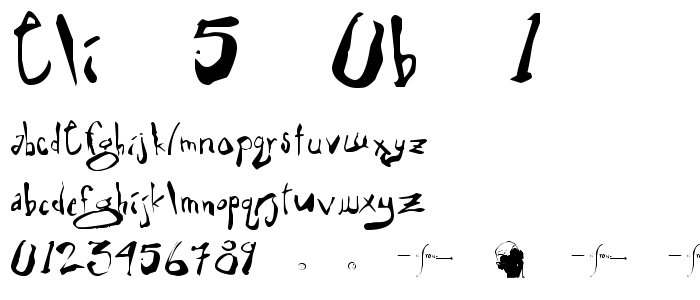 Eli 5 Ub 1
abcdEfghijklmnopqrstuvwxyz
abcdefghijklmnopqrstuvwxyz
0123456789